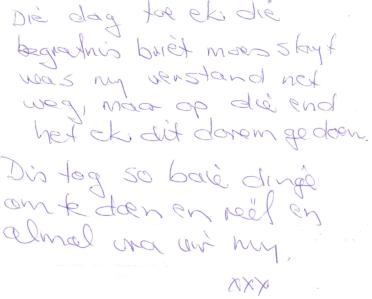 Dié dag toe ek dié
begrafnis briët moes skryf
was my verstand net
weg, maar op dié end
het ek dit darem gedoen.
Dis tog so baie dinge
om te doen en reël en
almal vra vir my.
xxx